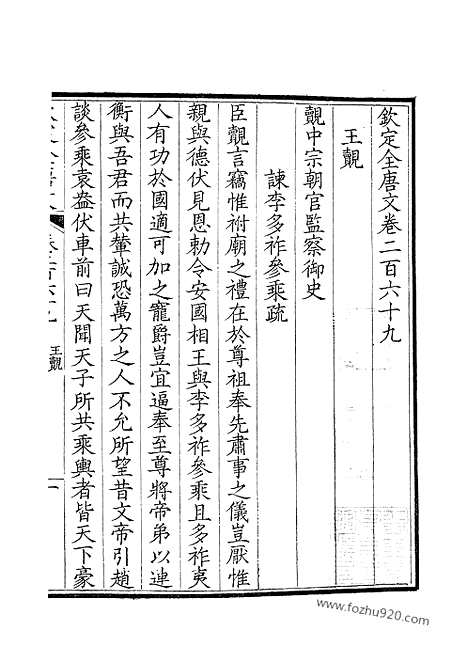 欽定全唐文卷二百六十九
王覿
覿中宗朝官監察御史
諫李多祚參乘疏
臣覿言竊惟祔廟之禮在於尊祖奉先肅事之儀豈厭惟
親與德伏見恩勅令安國相王與李多祚參乘且多祚夷
人有功於國適可加之寵爵豈宜逼奉至尊將帝弟以連
衡與吾君而共輦誠恐萬方之人不允所望昔文帝引趙
談參乘袁盎伏車前曰天聞天子所共乘輿者皆天下豪
王覿
www.fozhu920.com